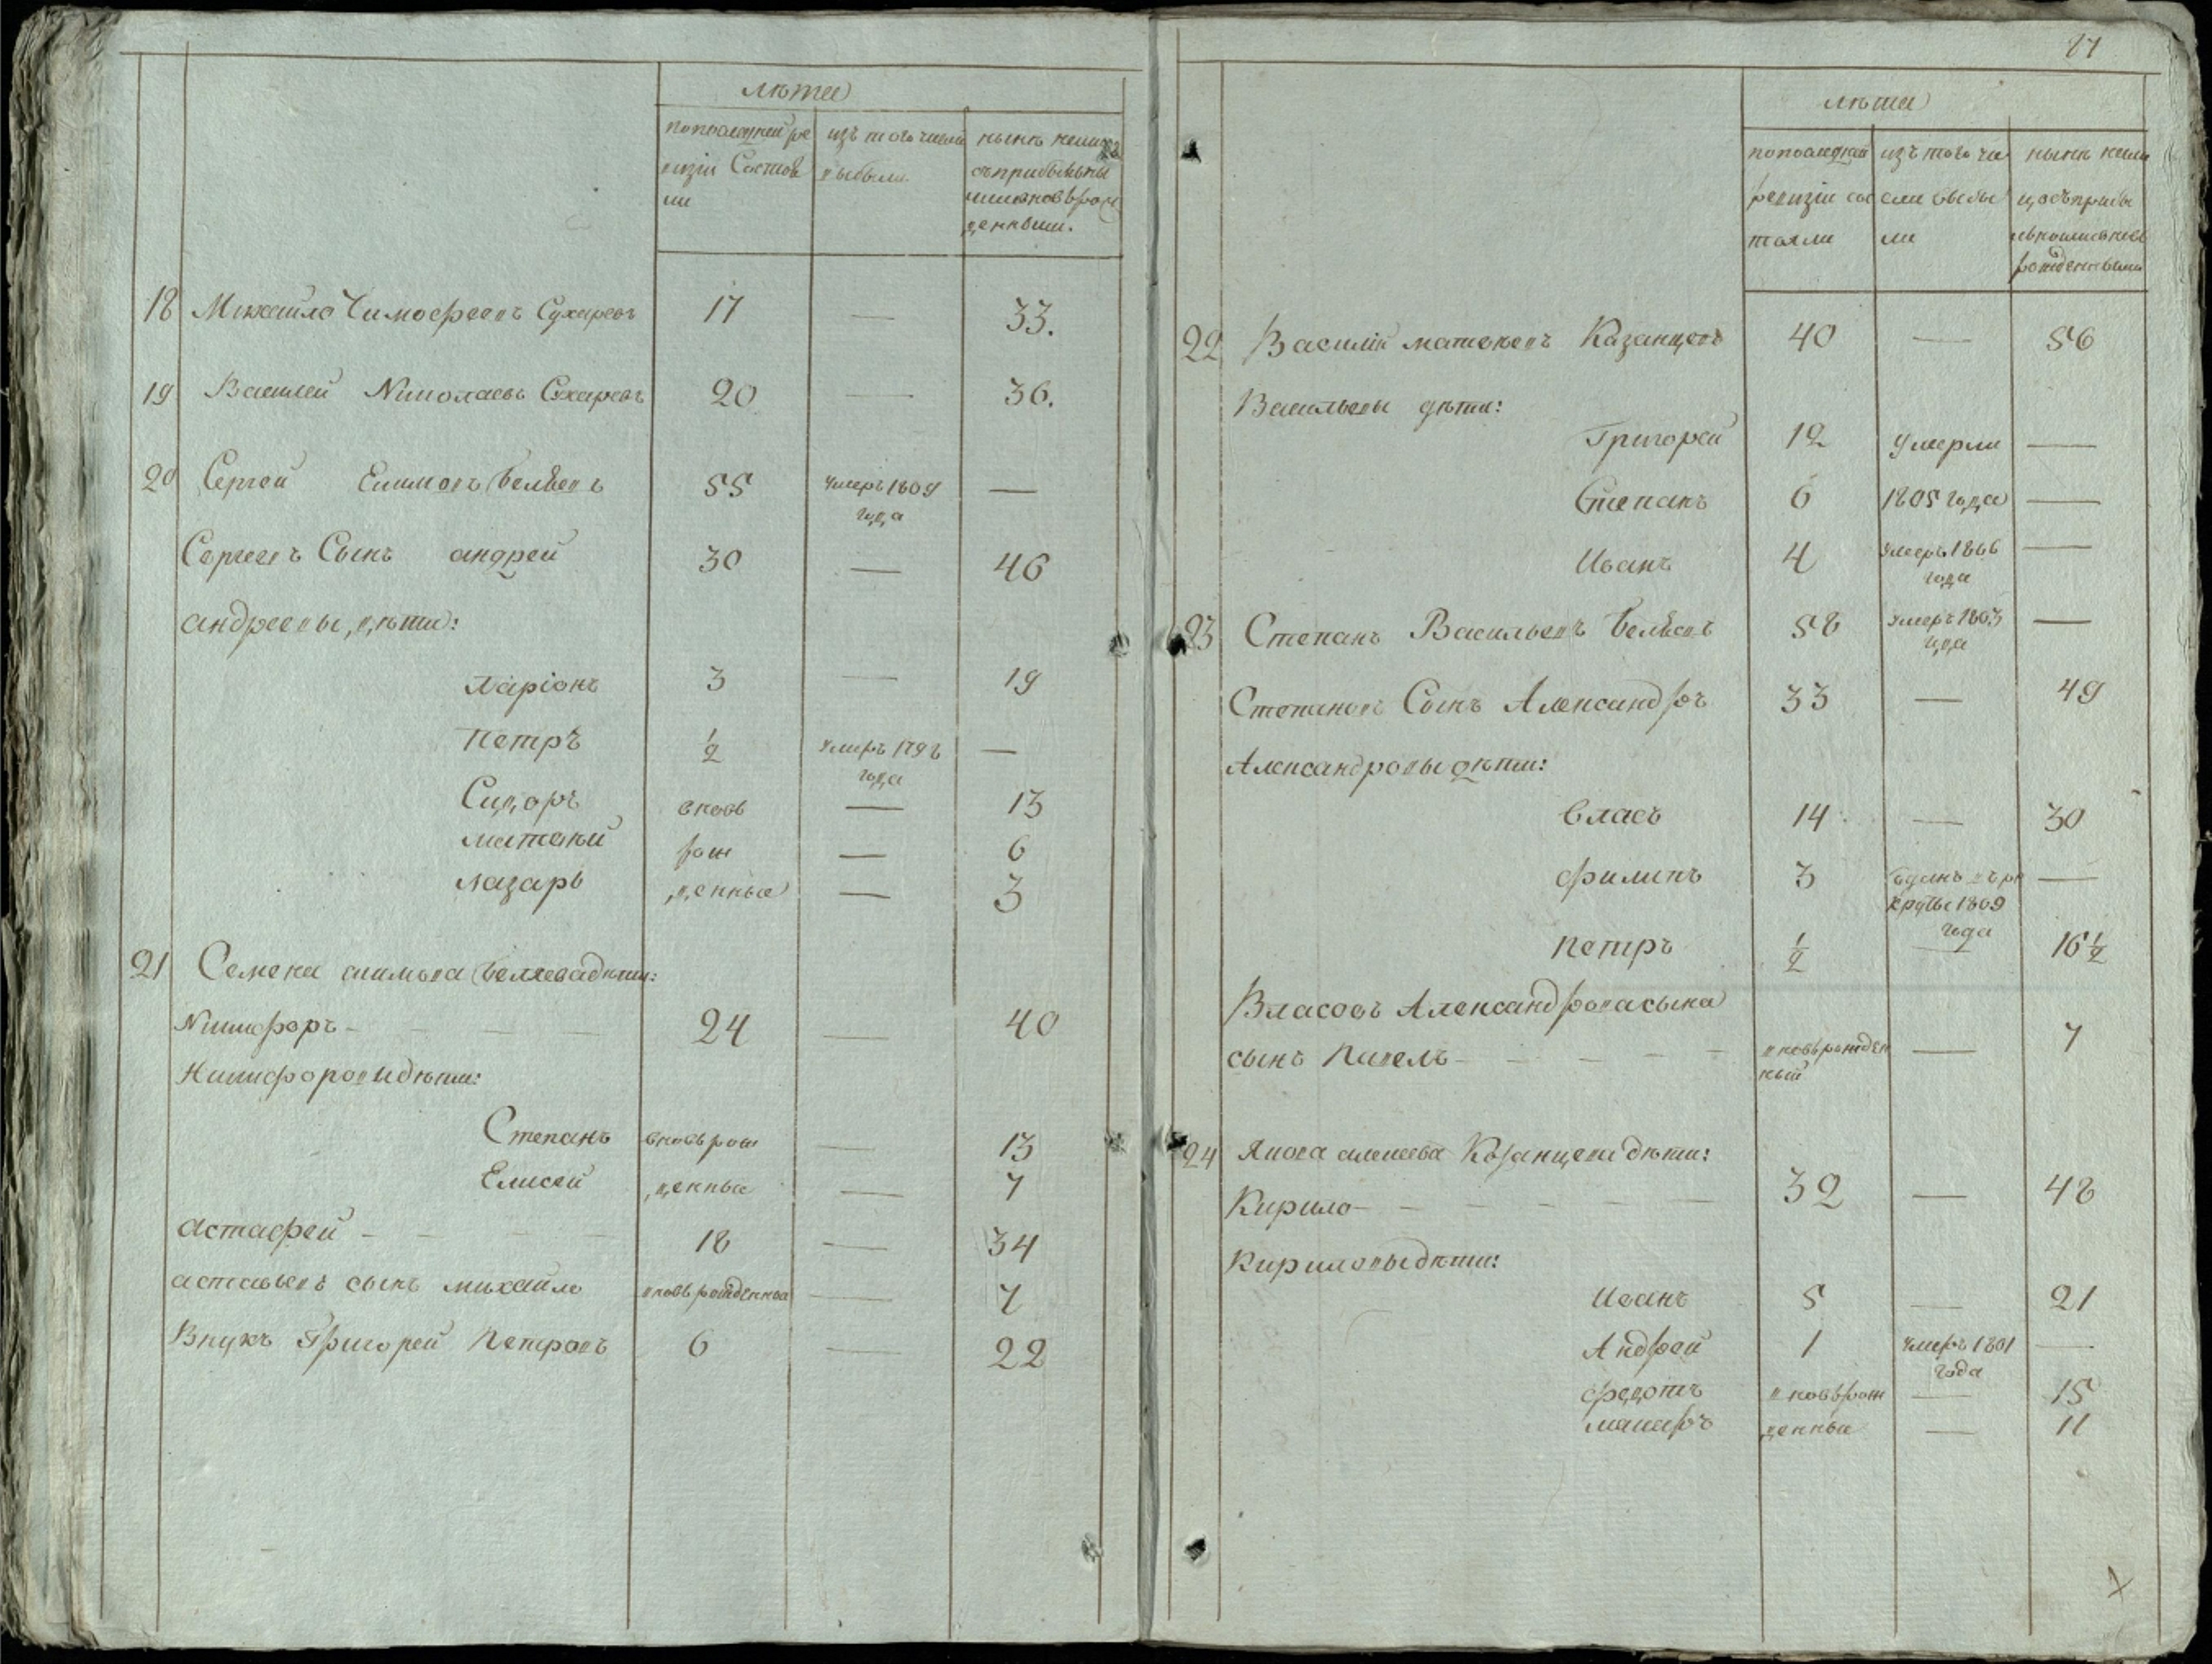 лѣта
по последней ре
визіи Состоя
ли
изъ того числа
выбыли
нынѣ налицо
съ прибылыми
и вновь рож
денными.
18 Михайло Тимофеевъ Сухаревъ 17 — 33.
19 Василей Николаевъ Сухаревъ 20 — 36.
20 Сергей Екимовъ Беляевъ 55 умеръ 1809 —
года
Сергеевъ Сынъ андрей 30 — 46
андреевы дѣти:
Ларіонъ 3 — 19
Петръ ½ умеръ 1798 —
года
Сидоръ вновь — 13
матвей рож — 6
лазарь денные — 3
21 Семена екимова беляева дѣти:
Никифоръ - — — — 24 — 40
Никифоровы дѣти:
Степанъ вновь рож — 13
Елисей денные — 7
астафей - — — — 18 — 34
астафьевъ сынъ михайло вновьрожденной — 7
Внукъ Григорей Петровъ 6 — 22
87
лѣта
по последней
ревизіи сос
тояли
изъ того чи
сла выбы
ли
нынѣ нали
цо съ прибы
лыми и вновь
рожденными
22 Василій матвеевъ Казанцовъ 40 — 56
Васильевы дѣти:
Григорей 12 умерли —
Степанъ 6 1805 года —
Иванъ 4 умеръ 1806 —
года
23 Степанъ Васильевъ беляевъ 58 умеръ 1803 —
года
Степановъ Сынъ Александръ 33 — 49
Александровы дѣти:
Власъ 14 — 30
филипъ 3 отданъ въ ре —
круты 1809
года
Петръ ½ — 16½
Власовъ Александрова сына
сынъ Павелъ - — — — — вновьрожден — 7
ный
24 Якова алексеева Казанцова дѣти:
Кирило - — — — — — 32 — 48
Кириловы дѣти:
Иванъ 5 — 21
Андрей 1 умеръ 1801 —
года
федотъ вновь рож — 15
макаръ денные — 11